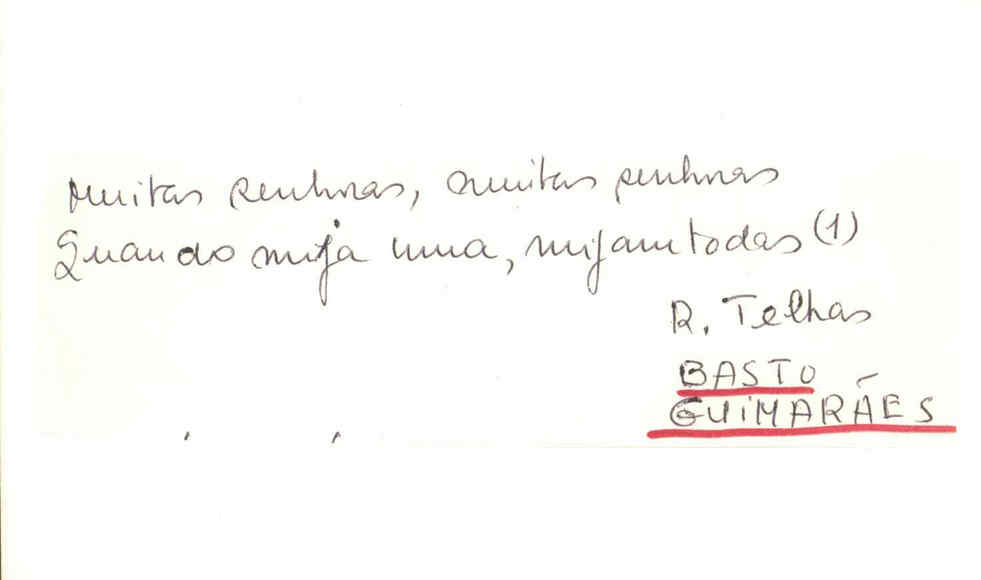 Muitas senhoras, muitas senhoras
Quando mija uma, mijam todas (1)
R. Telhas
BASTO
GUIMARÃES